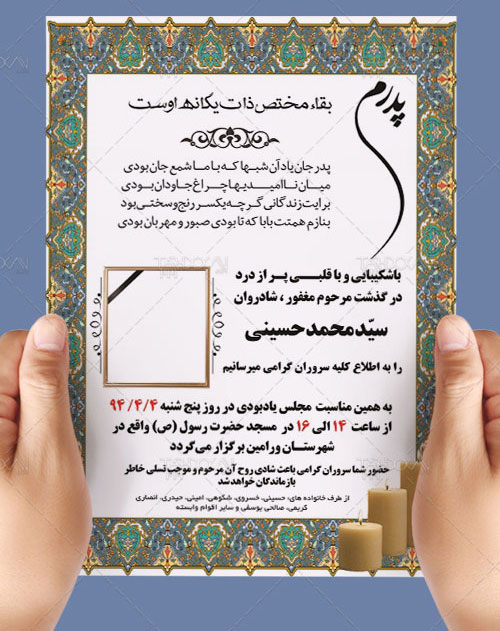 پدرم
بقاء مختص ذات یکانه اوست
پدر جان یاد آن شبها که با ما شمع جان بودی
میان ناامیدیها چراغ جاودان بودی
برایت زندگانی گرچه یکسر رنج و سختی بود
بنازم همتت بابا که تا بودی صبور و مهربان بودی
باشکیبایی و با قلبی پر از درد
در گذشت مرحوم مغفور ، شادروان
سیّد محمد حسینی
را به اطلاع کلیه سروران گرامی میرسانیم
به همین مناسبت مجلس یادبودی در روز پنج شنبه ۹۴/۴/۴
از ساعت ۱۴ الی ۱۶ در مسجد حضرت رسول (ص) واقع در
شهرستان ورامین برگزار می‌گردد
حضور شما سروران گرامی باعث شادی روح آن مرحوم و موجب تسلی خاطر
بازماندگان خواهد شد
از طرف خانواده های: حسینی، خسروی، شکوهی، امینی، حیدری، انصاری
کریمی، صالحی یوسفی و سایر اقوام وابسته